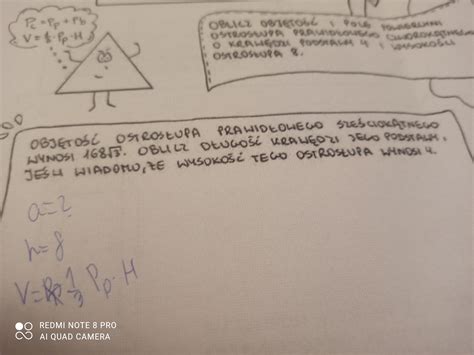 Pc = Pp + Pb
V = ⅓ · Pp · H
OBLICZ OBJĘTOŚĆ I POLE POWIERZCHNI
OSTROSŁUPA PRAWIDŁOWEGO CZWOROKĄTNEGO
O KRAWĘDZI PODSTAWY 4 I WYSOKOŚCI
OSTROSŁUPA 8.
OBJĘTOŚĆ OSTROSŁUPA PRAWIDŁOWEGO SZEŚCIOKĄTNEGO
WYNOSI 168√3. OBLICZ DŁUGOŚĆ KRAWĘDZI JEGO PODSTAWY,
JEŚLI WIADOMO, ŻE WYSOKOŚĆ TEGO OSTROSŁUPA WYNOSI 4.
a = ?
h = 8
V = ⅓ Pp · H
REDMI NOTE 8 PRO
AI QUAD CAMERA